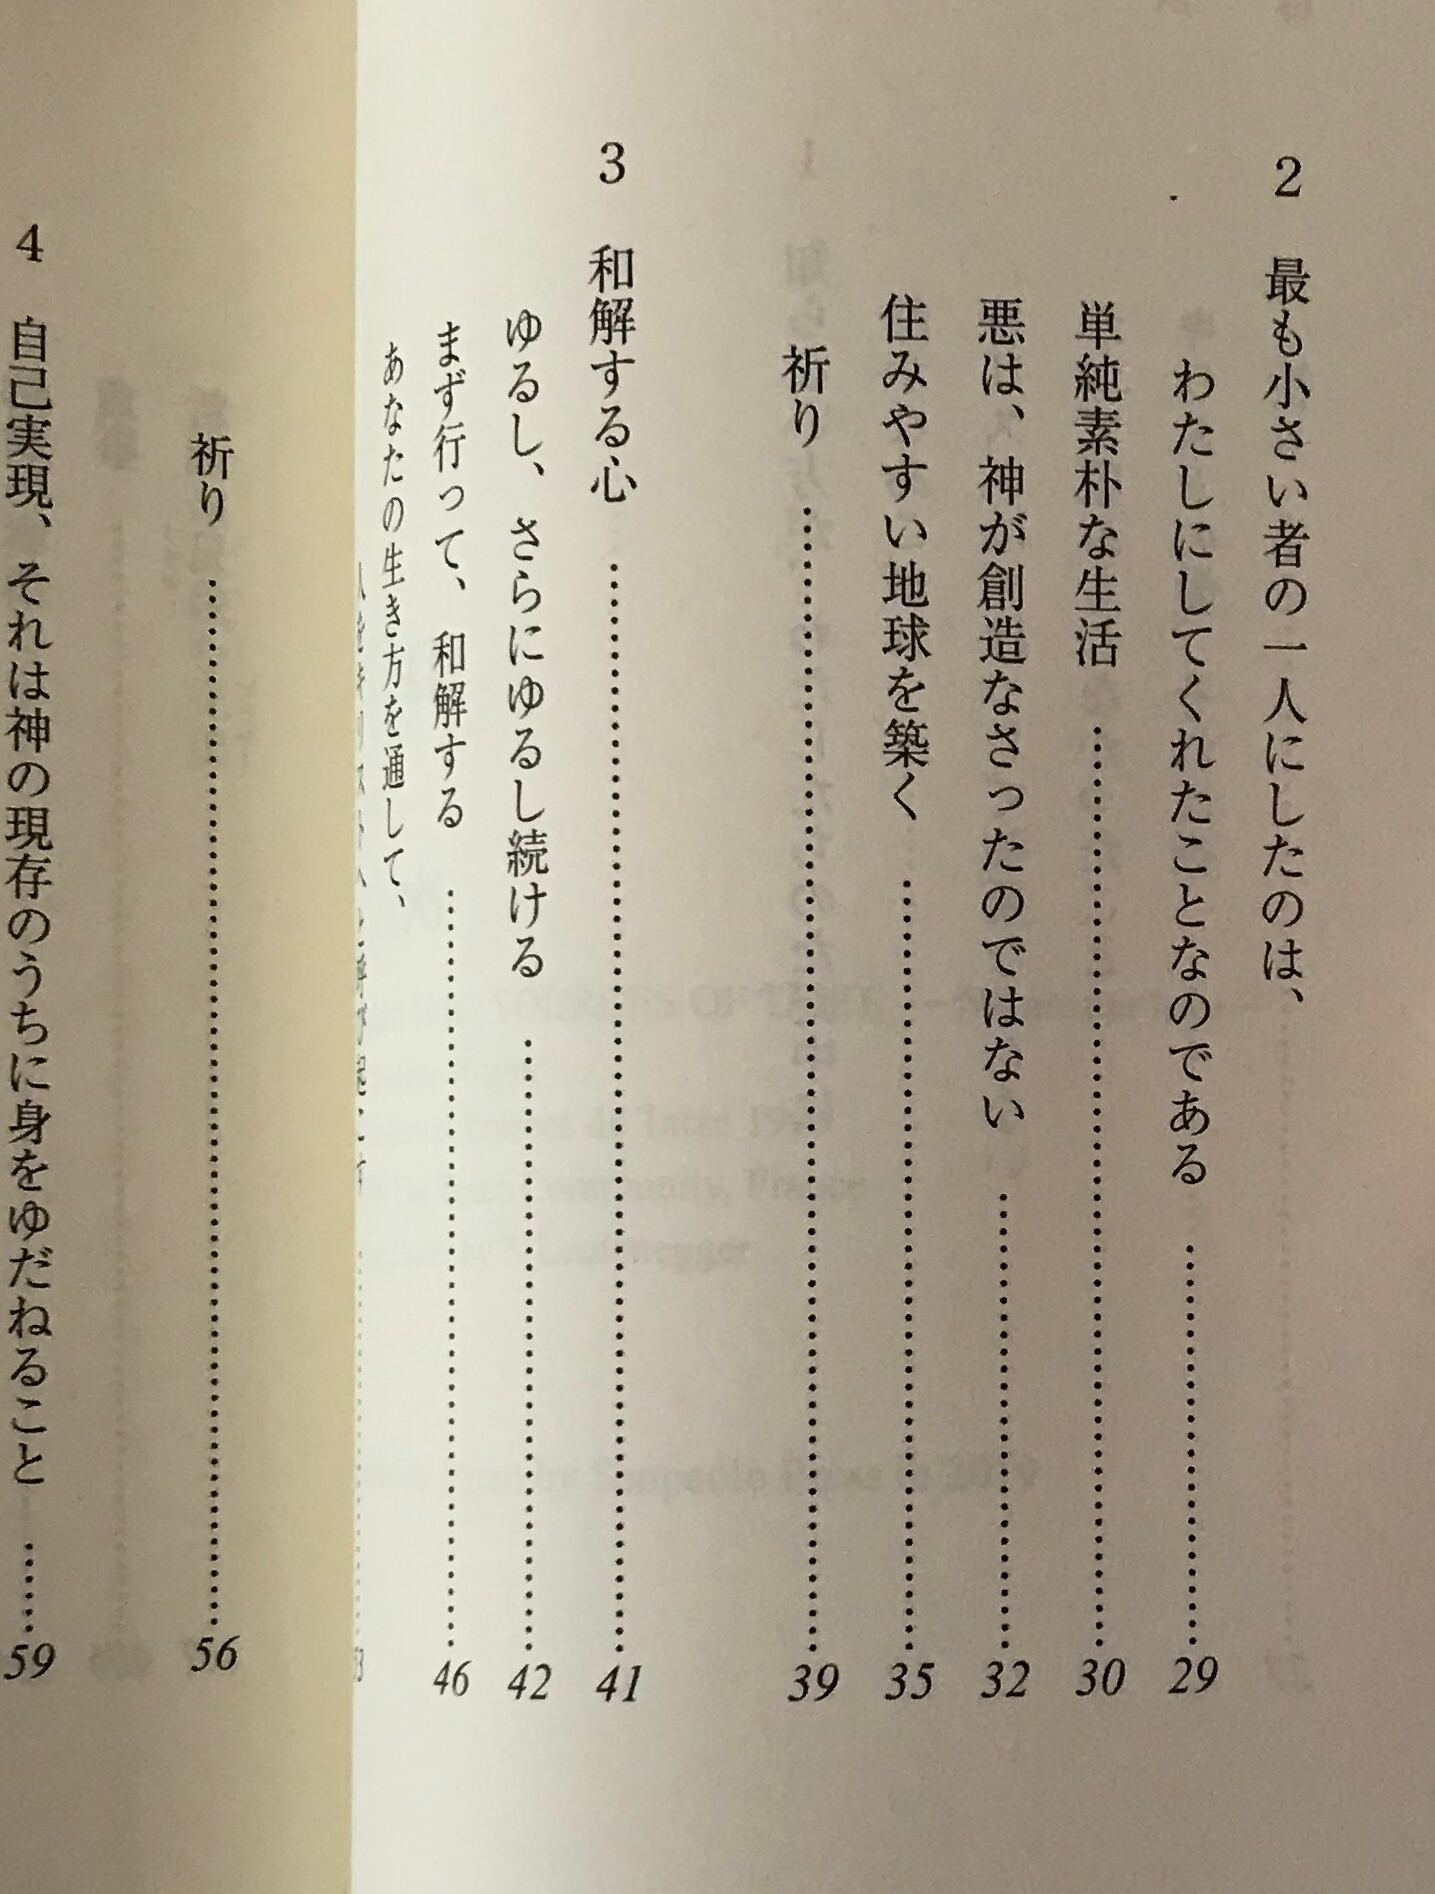 2 最も小さい者の一人にしたのは、
わたしにしてくれたことなのである 29
単純素朴な生活 30
悪は、神が創造なさったのではない 32
住みやすい地球を築く 35
祈り 39
3 和解する心 41
ゆるし、さらにゆるし続ける 42
まず行って、和解する 46
あなたの生き方を通して、
祈り 56
4 自己実現、それは神の現存のうちに身をゆだねること 59